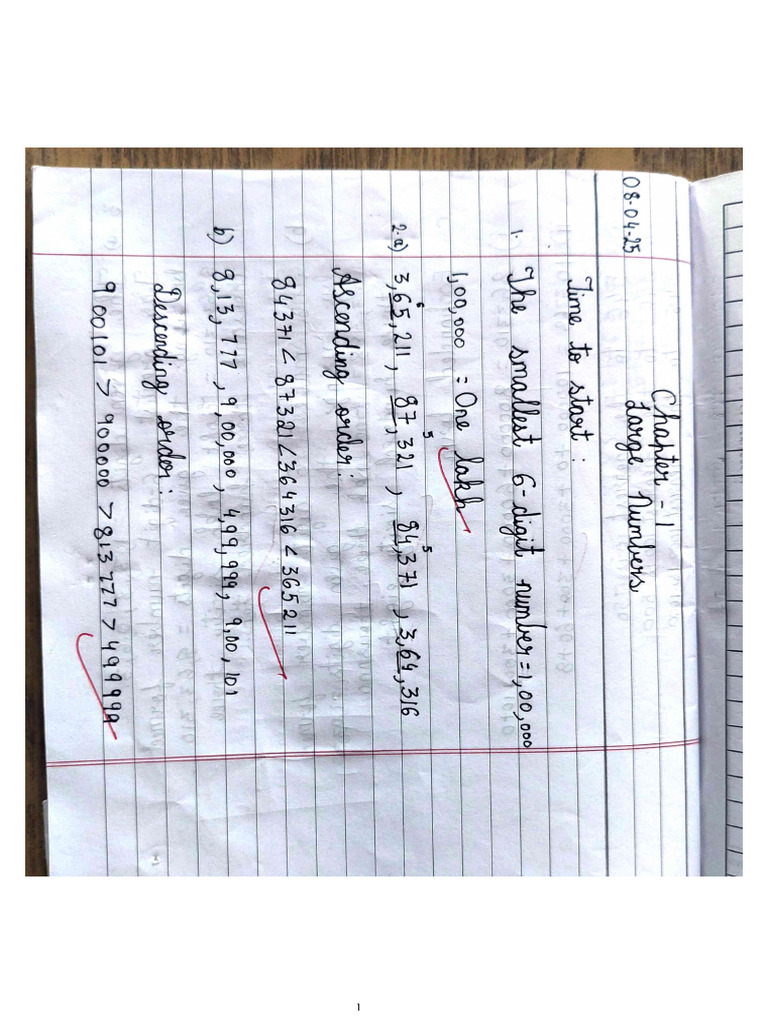 08-04-25
Chapter - 1
Large Numbers
Time to start :
1. The smallest 6-digit number = 1,00,000
1,00,000 = One lakh
2.a) 3,65,211, 87,321, 84,371, 3,64,316
6 5 5
Ascending order:
84371 < 87321 < 364316 < 365211
b) 8,13,777, 9,00,000, 4,99,999, 9,00,101
Descending order:
900101 > 900000 > 813777 > 499999
1